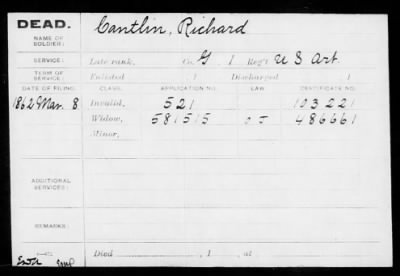 DEAD. Cantlin, Richard
NAME OF SOLDIER:
SERVICE: Late rank, Co. G, 1 Reg't U S Art.
TERM OF SERVICE: Enlisted , 1 Discharged , 1
DATE OF FILING. CLASS. APPLICATION NO. LAW. CERTIFICATE NO.
1862 Mar. 8 Invalid, 521 103221
Widow, 581515 486661
Minor,
ADDITIONAL SERVICES:
REMARKS:
Died , 1 , at